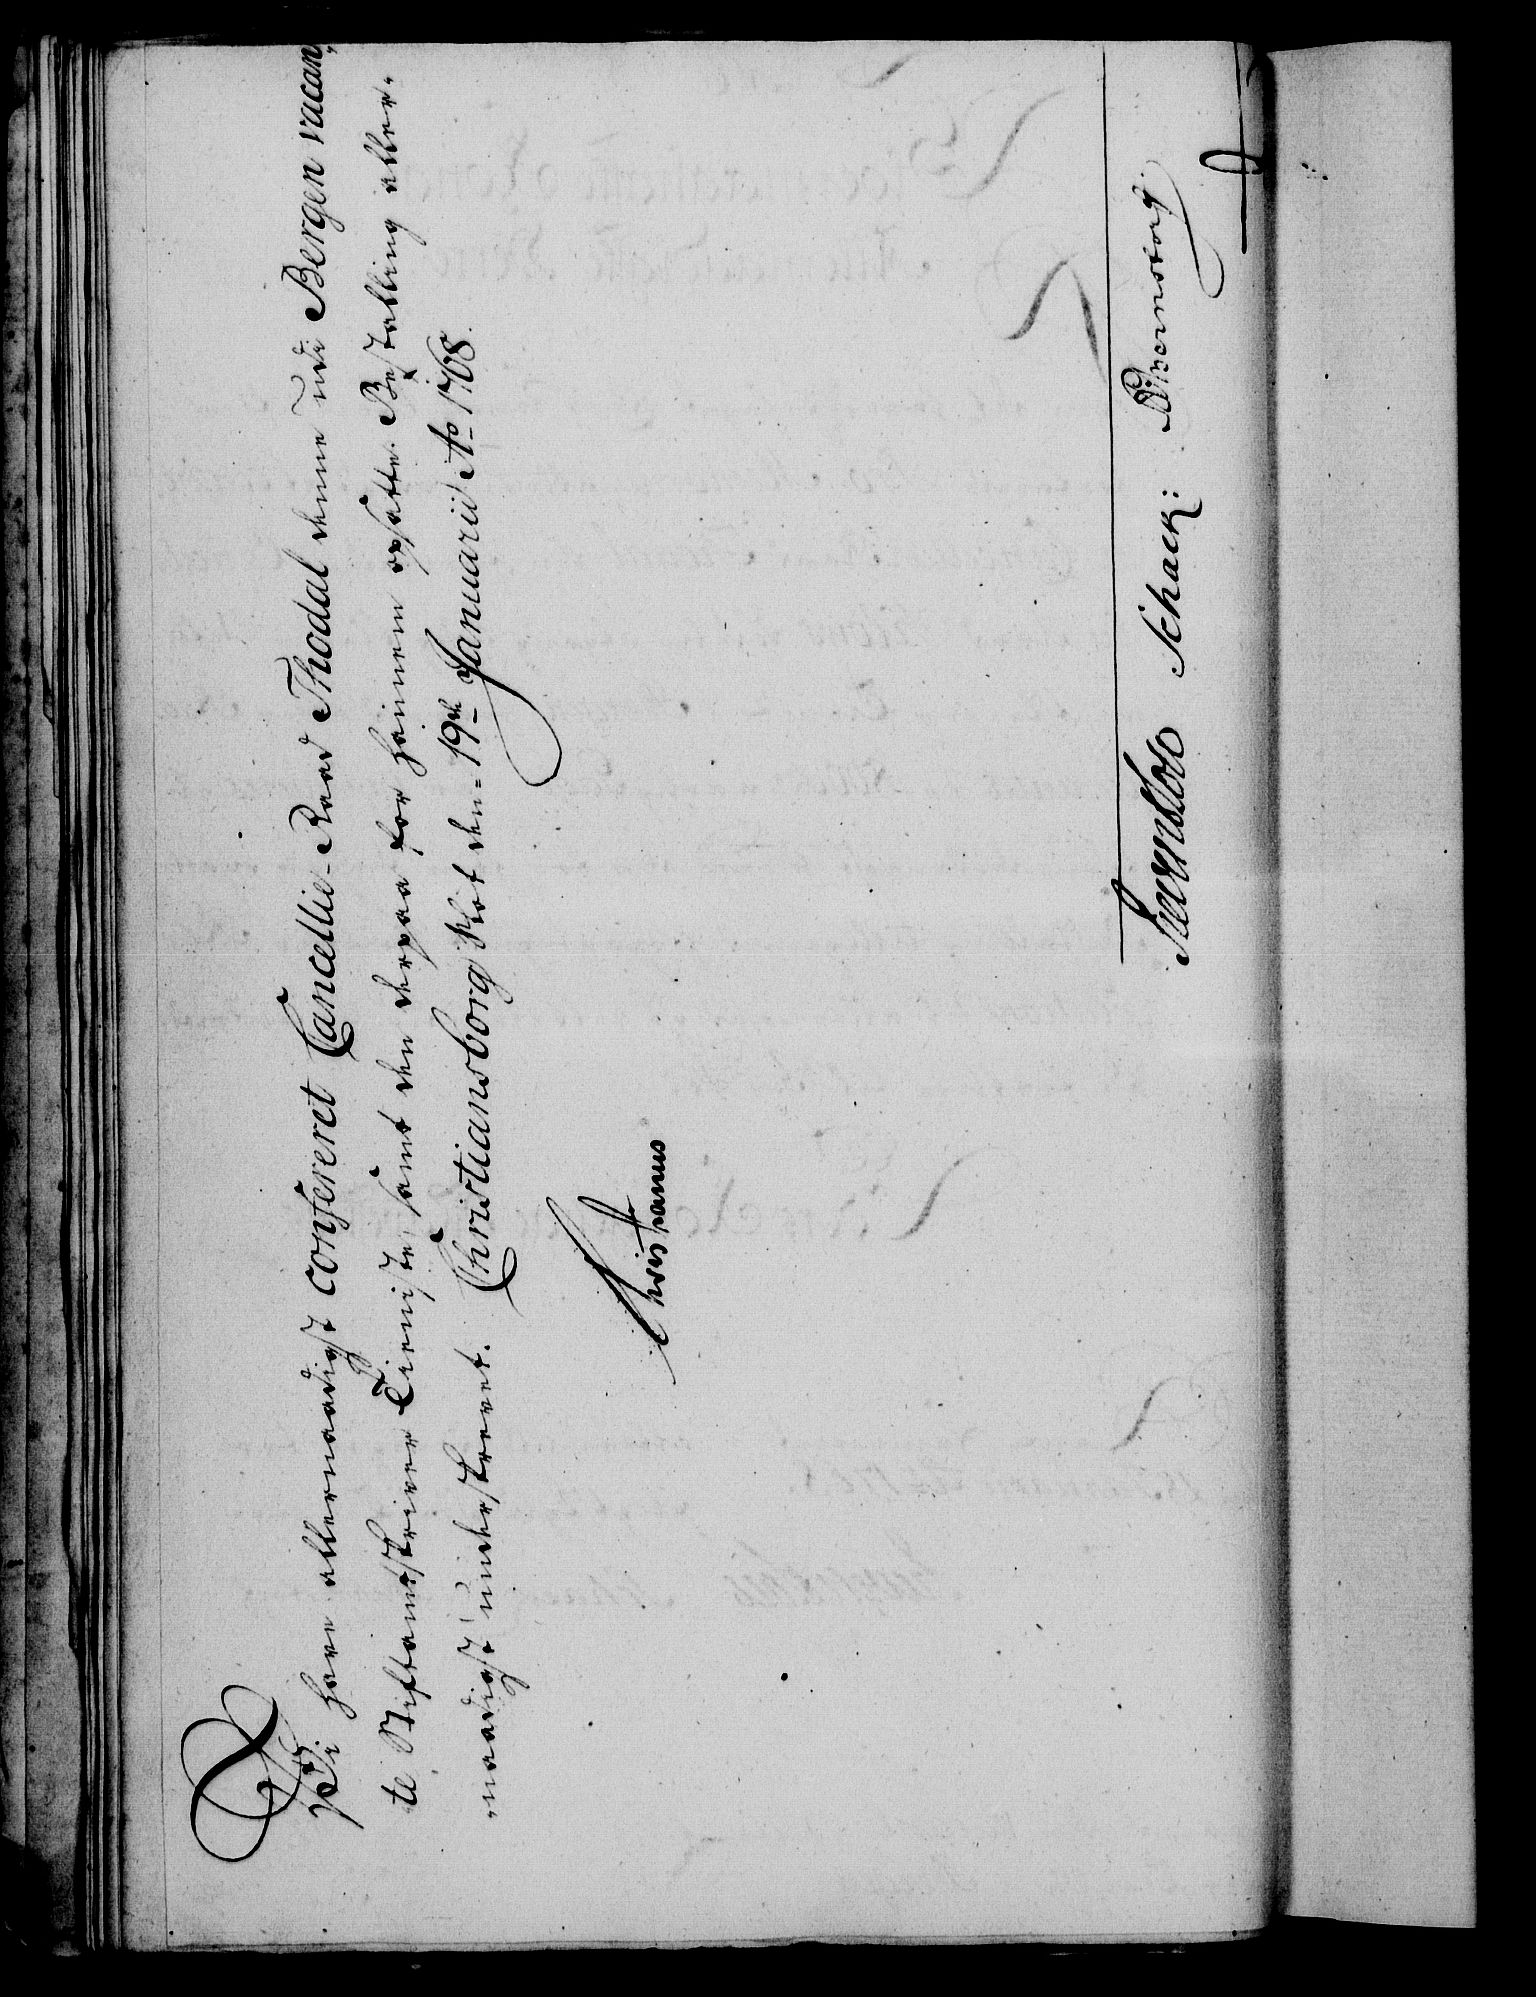 Vi have allernaadigst confereret Cancellie-Raad Thodal denne udi Bergen vacan,
te Stiftamtskriver Tieniste samt den derpaa for hannem opsatte Bestalling aller-
naadigst underskrevet. Christiansborg Slot den 19de Januarii Ao 1768.
Christianus
Schack: Bernstorff.